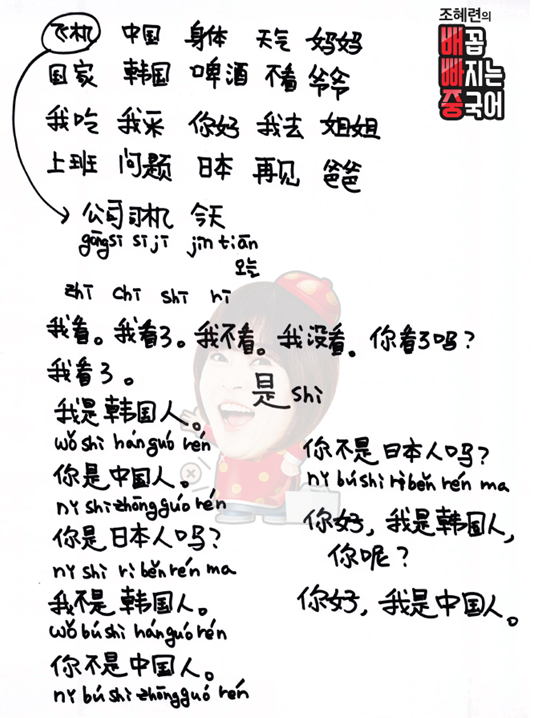 조혜련의
배꼽
빠지는
중국어
飞机 中国 身体 天气 妈妈
国家 韩国 啤酒 不看 爷爷
我吃 我来 你好 我去 姐姐
上班 问题 日本 再见 爸爸
公司 司机 今天
gōngsī sījī jīn tiān
오늘
zhī chī shī rī
我看。我看了。我不看。我没看。你看了吗?
我看了。
是 shì
我是韩国人。
wǒ shì hánguó rén
你是中国人。
nǐ shì zhōngguó rén
你是日本人吗?
nǐ shì rì běn rén ma
我不是韩国人。
wǒ bú shì hánguó rén
你不是中国人。
nǐ bú shì zhōngguó rén
你不是日本人吗?
nǐ bú shì rì běn rén ma
你好, 我是韩国人,
你呢?
你好, 我是中国人。